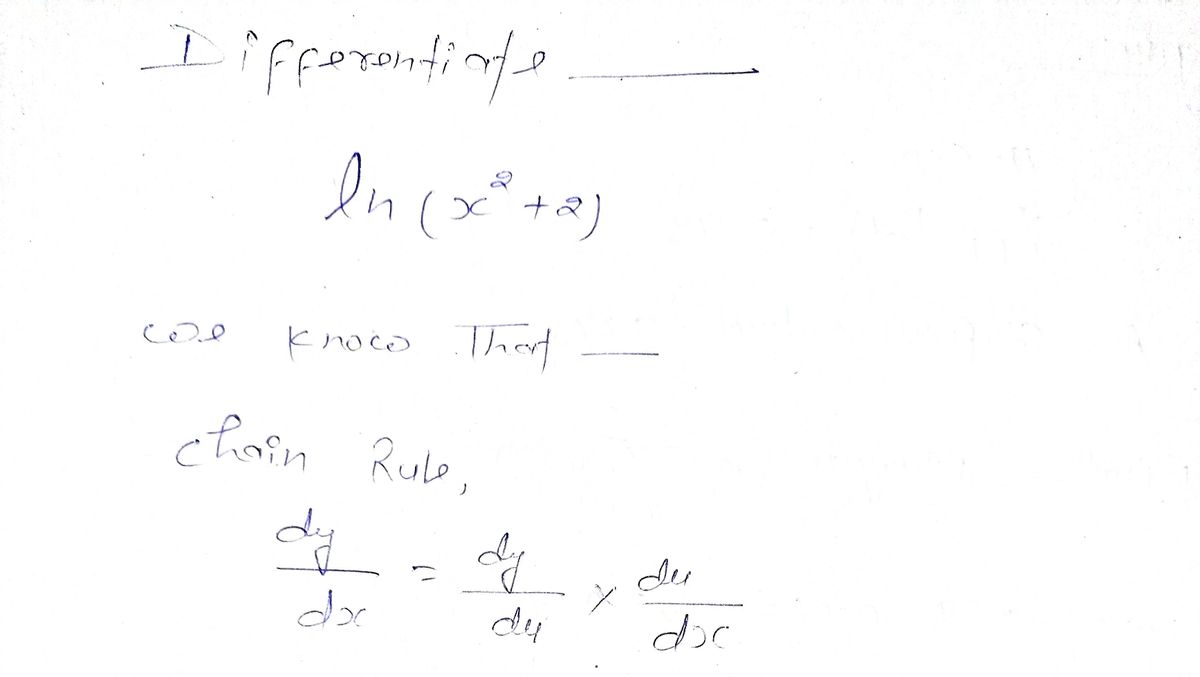 Differentiate —
ln (x² + 2)
we know That —
chain Rule,
dy/dx = dy/du × du/dx